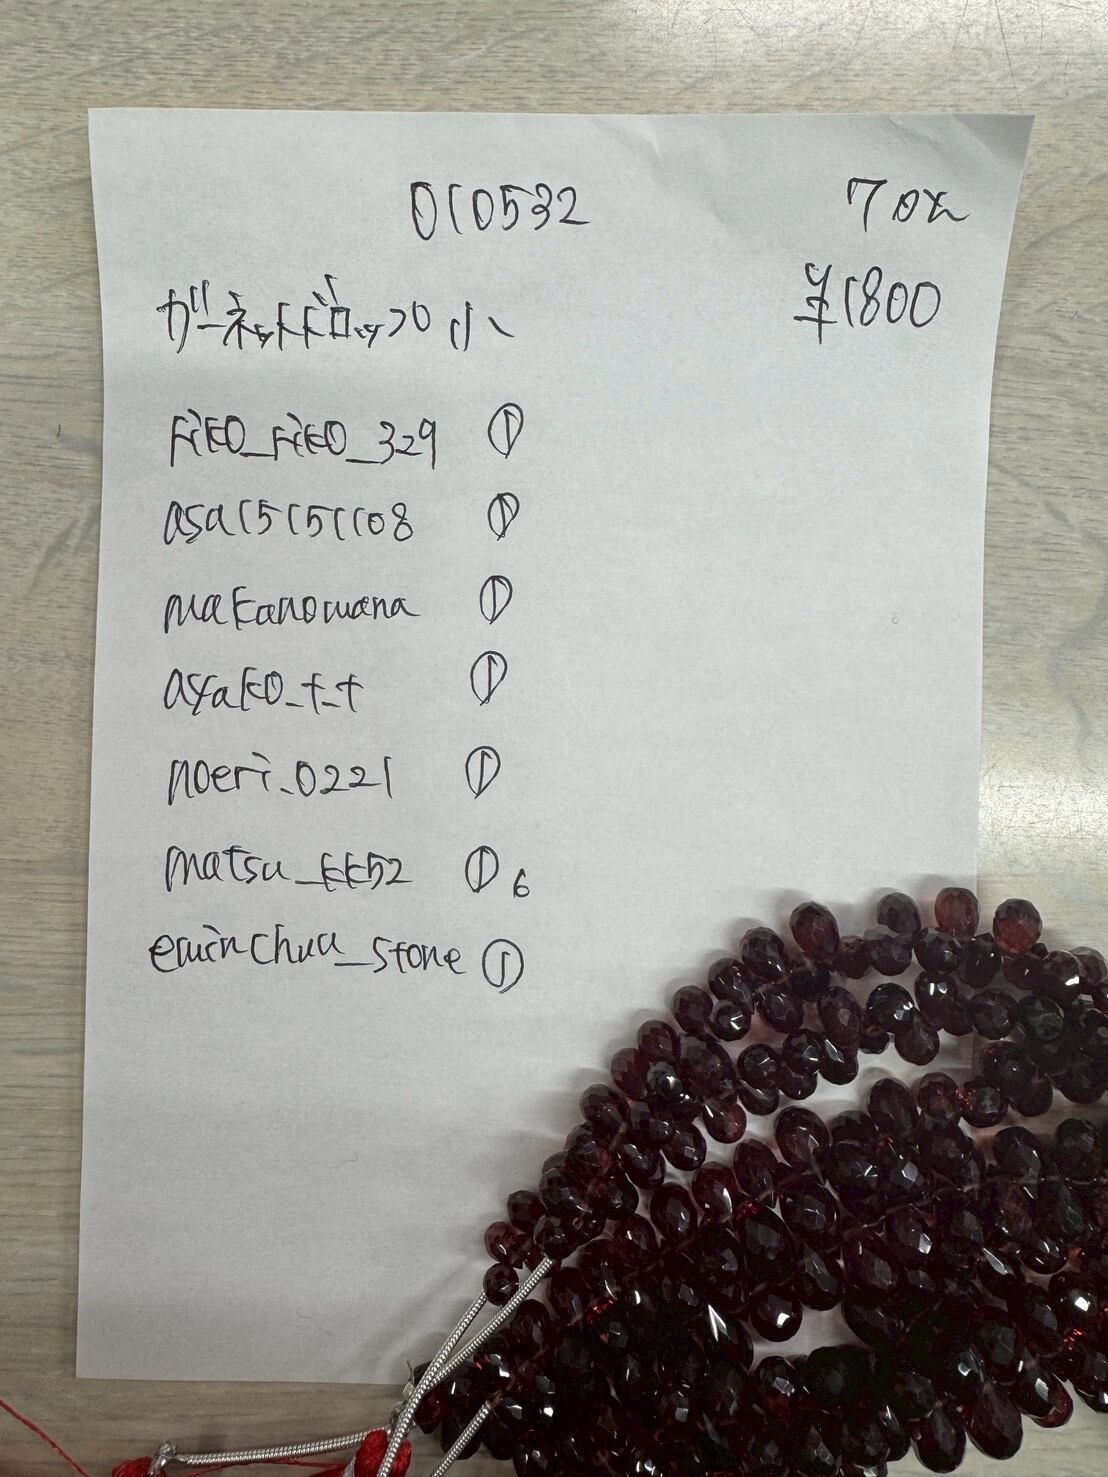 010532 7op
¥1800
ガーネットドロップ 小
riko_riko_329 ①
asa15151108 ①
makanowana ①
ayako_t_t ①
noeri.0221 ①
matsu_kk52 ① 6
eminchuu_stone ①